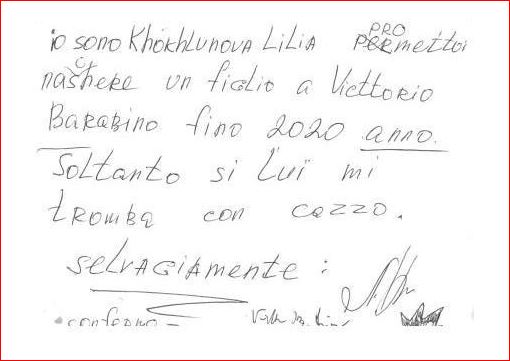 io sono KhokhLunova LiLiA PROmettoi
nascere un figlio a Victtorio
Barabino fino 2020 anno.
Soltanto si Lui mi
tromba con cazzo.
SELVAGIAMENTE:
confermo -